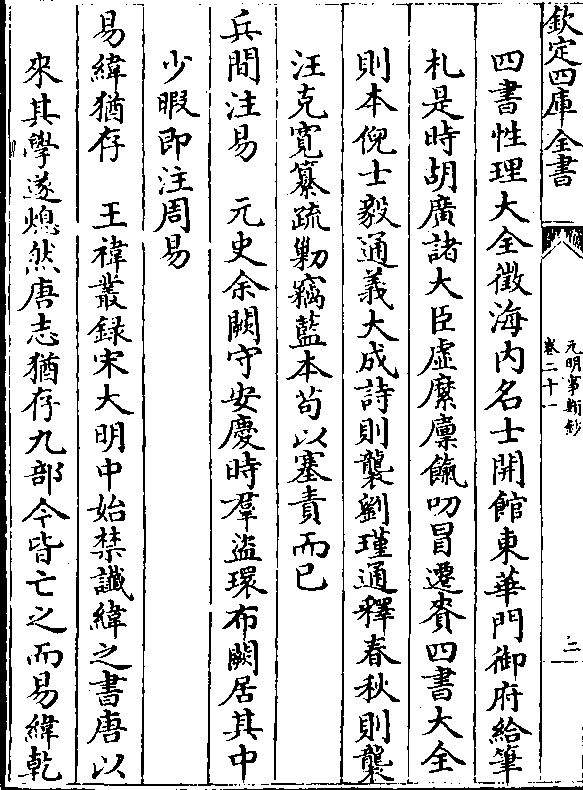 欽定四庫全書
元明事類鈔
卷二十一
三
四書性理大全徵海内名士開館東華門御府給筆
札是時胡廣諸大臣虛縻廩餼叨冒遷賚四書大全
則本倪士毅通義大成詩則襲劉瑾通釋春秋則襲
汪克寛纂疏勦竊藍本苟以塞責而已
兵間注易 元史余闕守安慶時羣盜環布闕居其中
少暇即注周易
易緯猶存 王禕叢録宋大明中始禁讖緯之書唐以
來其學遂熄然唐志猶存九部今皆亡之而易緯乾